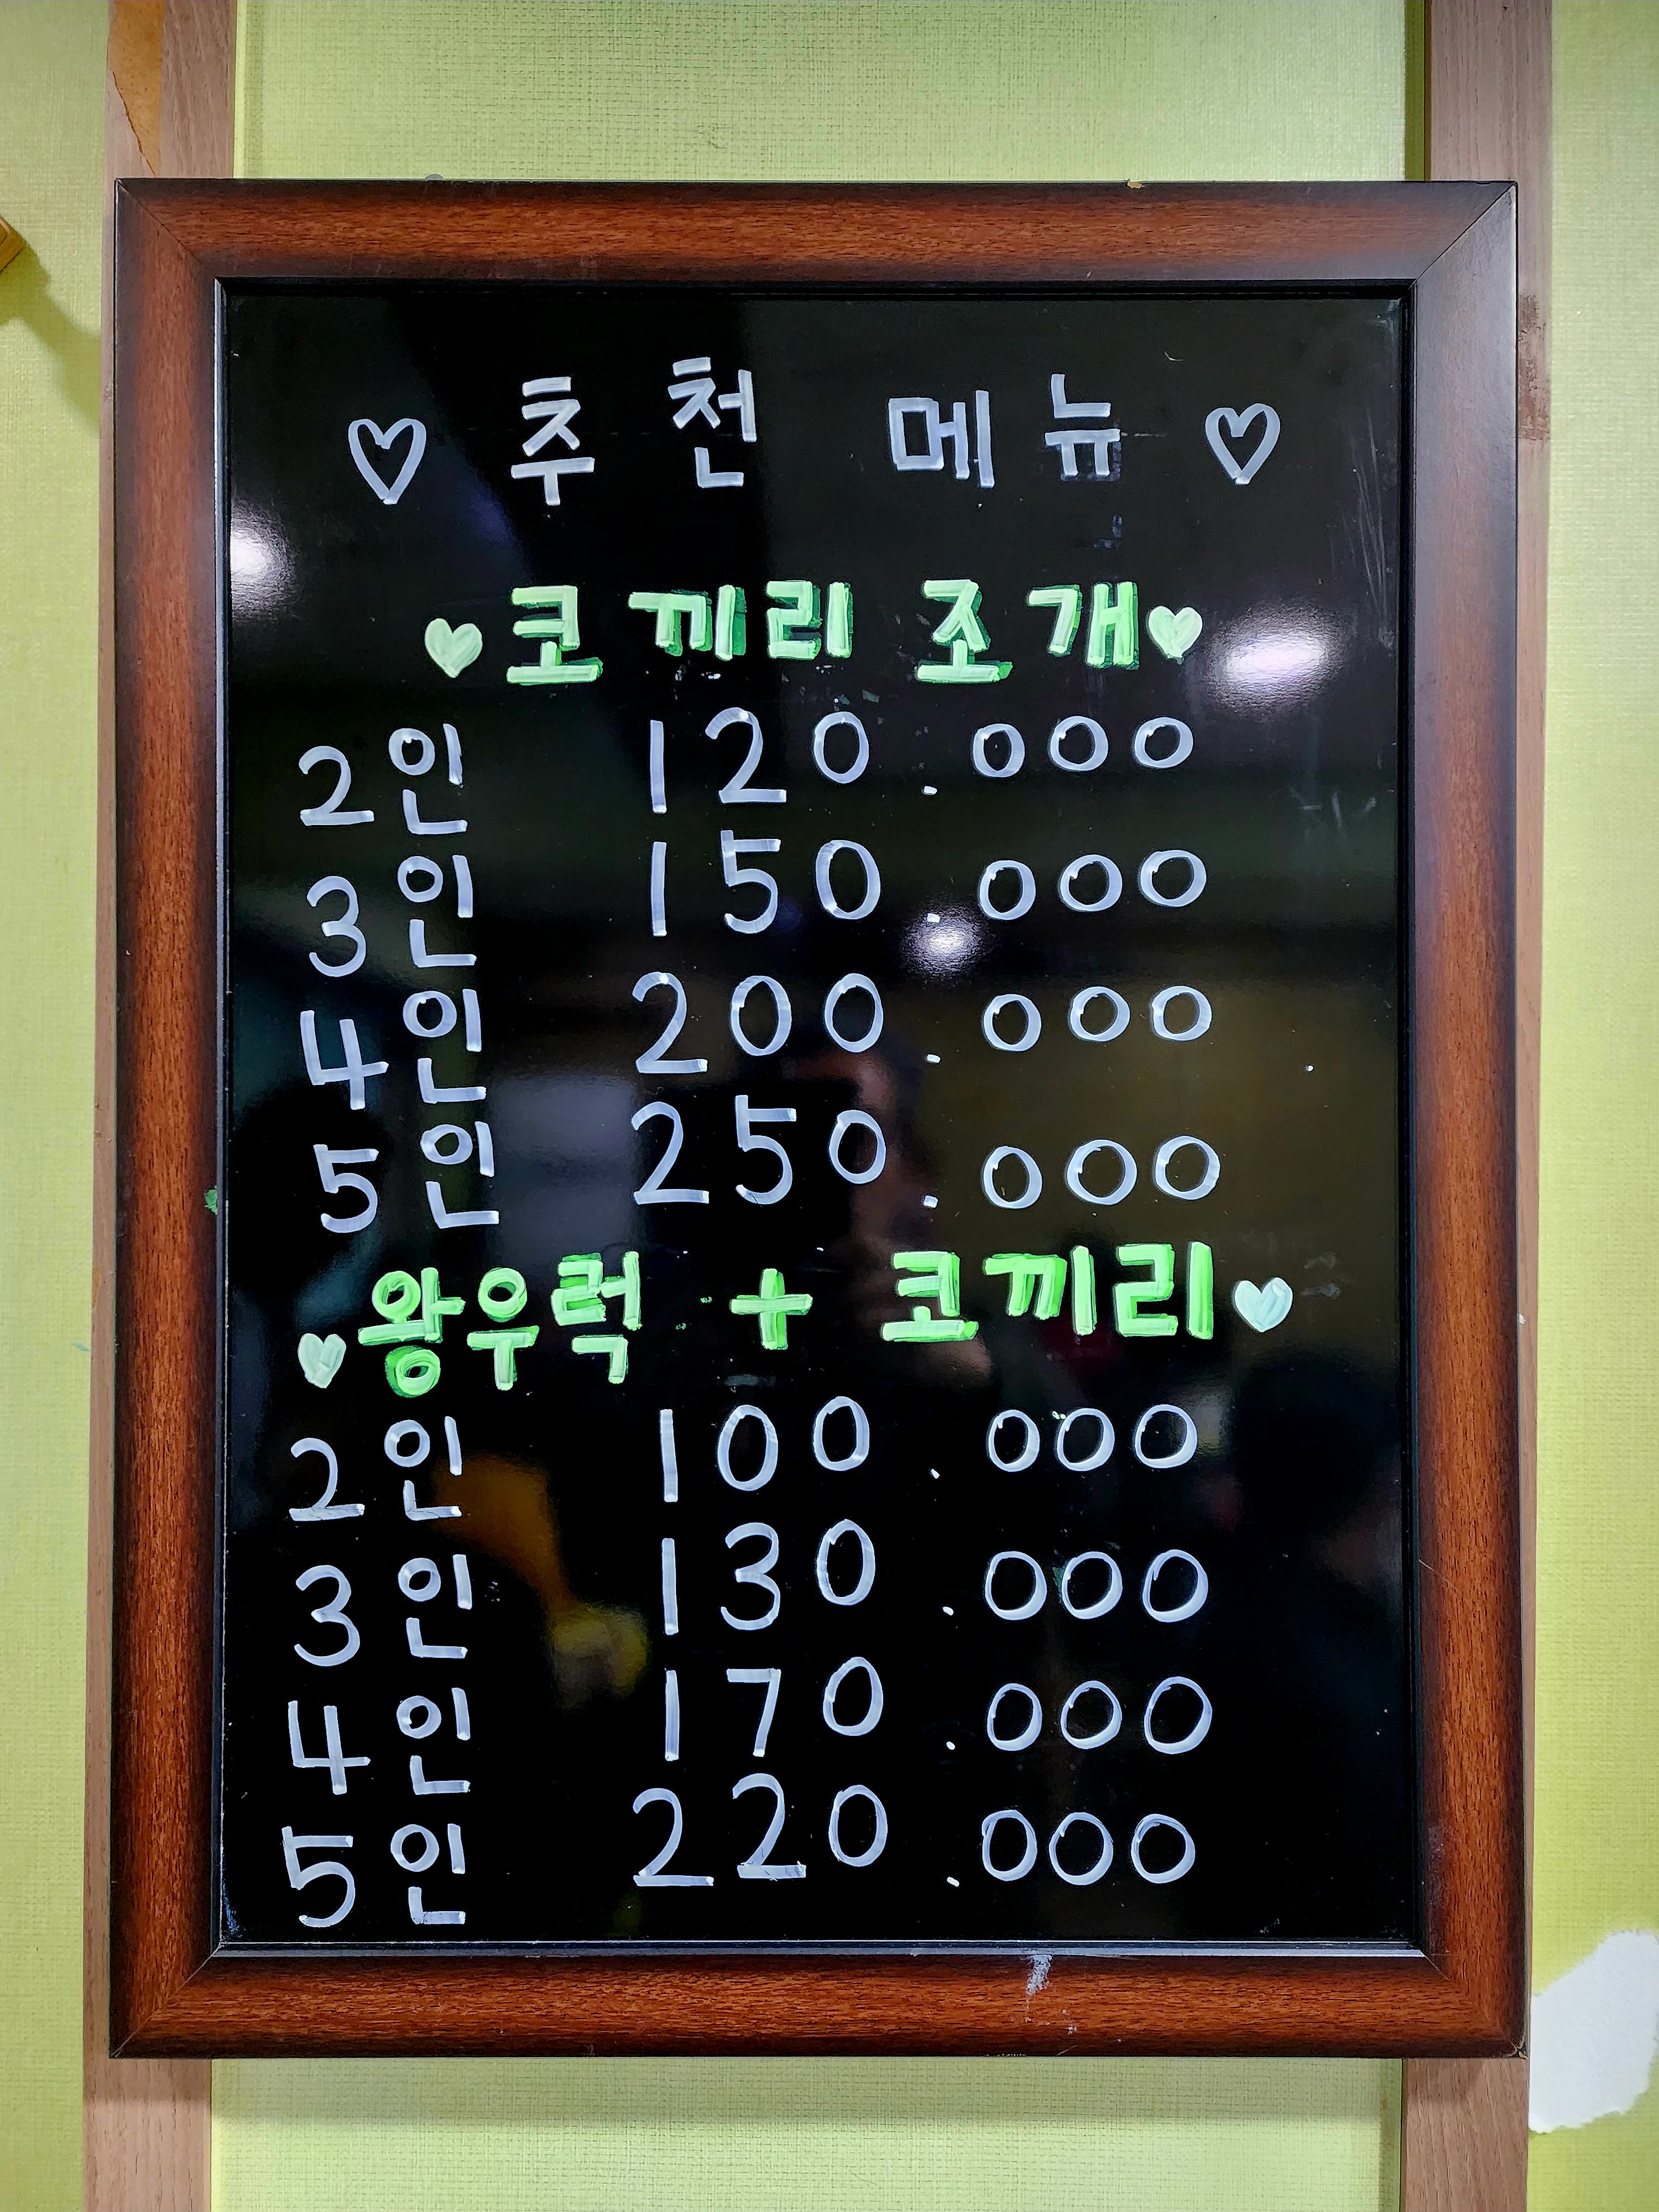 ♡ 추천 메뉴 ♡
♥코끼리 조개♥
2인 120.000
3인 150.000
4인 200.000
5인 250.000
♥왕우럭 + 코끼리♥
2인 100.000
3인 130.000
4인 170.000
5인 220.000